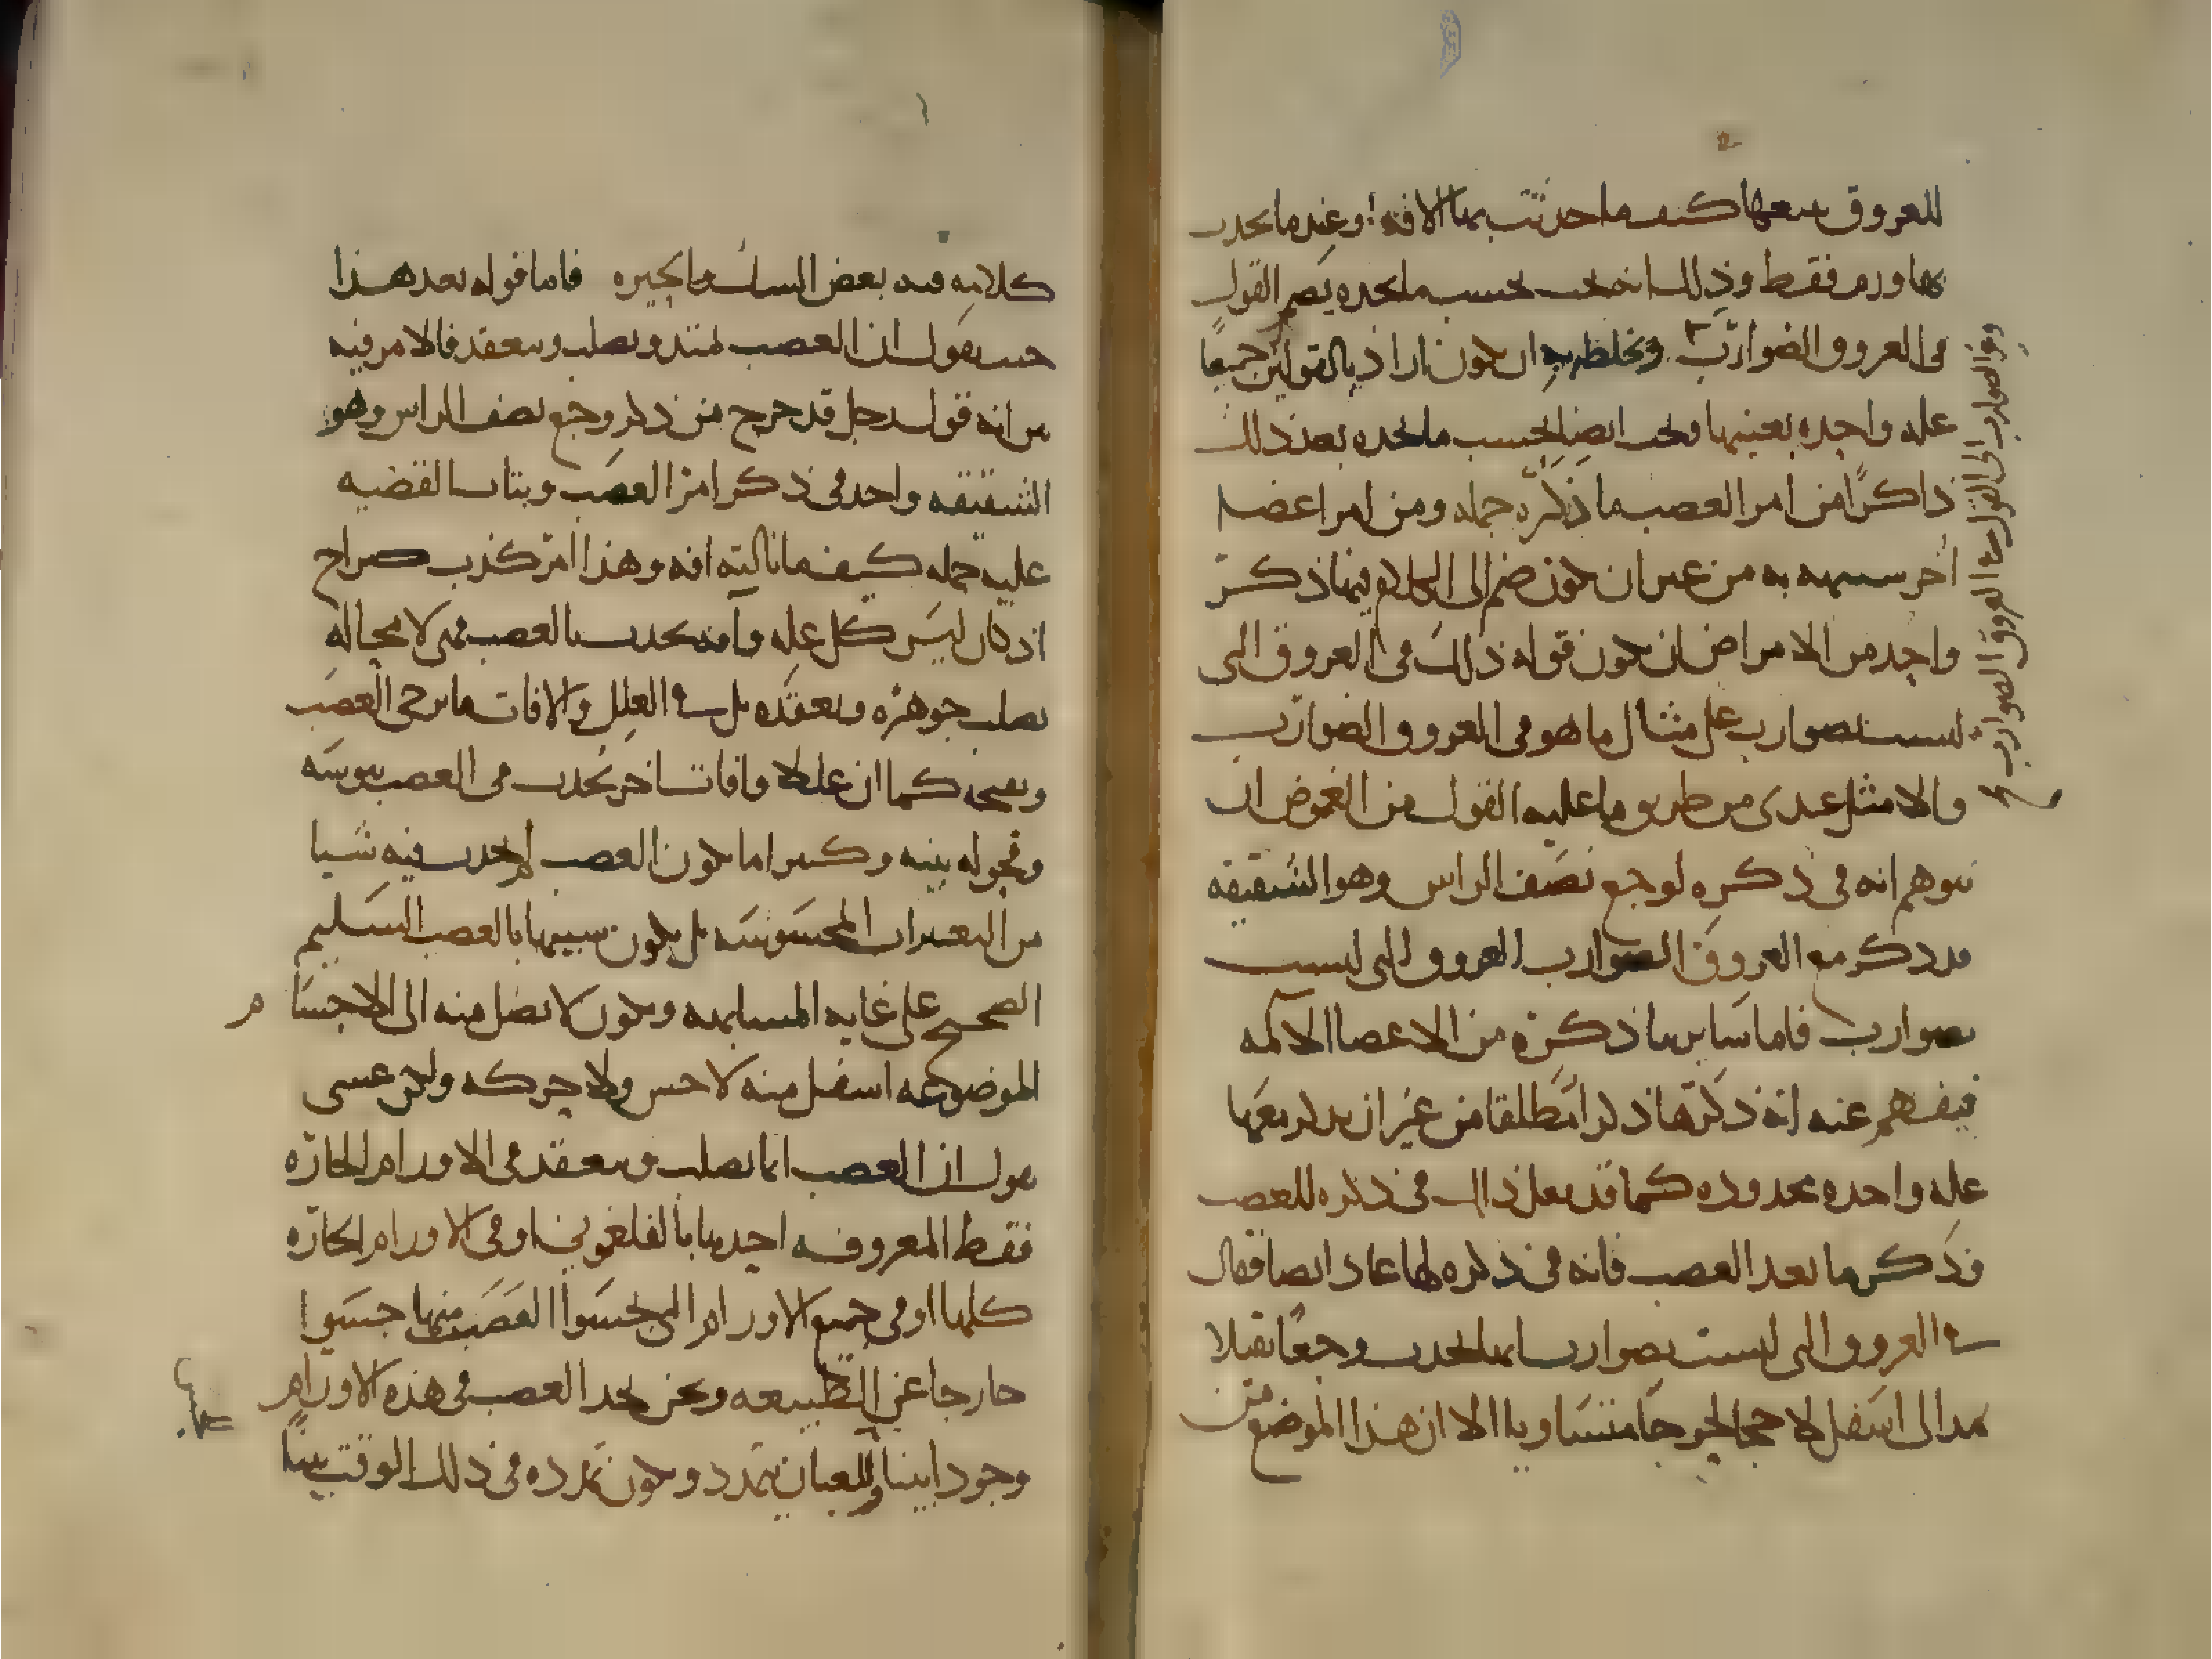 للعروق تتبعها كيف ما حدثت بها الافة او عند ما يحدث
بها ورم فقط وذلك انه يجب بحسب ما نجده يضم القول
في العروق الضوارب ان يكون اراد بالقولين جميعا
علة واحدة بعينها ويجب ايضا بحسب ما نجده بعد ذلك
ذاكرا من امر العصب ما ذكره جملة ومن امر اعضا
اخر شبيهة به من غير ان يكون ضم الى الكلام فيها ذكر
واحد من الامراض ان يكون قوله ذلك في العروق التي
ليست بضوارب على مثال ما هو في العروق الضوارب
والامثل عندي من طريق ما عليه القول من الغموض ان
نتوهم انه في ذكره لوجع نصف الراس وهو الشقيقة
قد ذكر مع العروق الضوارب العروق التي ليست
بضوارب فاما ساير ما ذكره من الاعضا الالمة
فيفهم عنه انه ذكرها ذكرا مطلقا من غير ان يذكر معها
علة واحدة محدودة كما قد فعل ذلك في ذكره للعصب
فذكر ما بعد العصب فانه في ذكره لها عاد ايضا فقال
في العروق التي ليست بضوارب انها تحدث وجعا ثقيلا
يمتد الى اسفل لاحجا لحوجا متساويا الا ان هذا الموضع من
ومن الضوارب الى القول في العروق الضوارب
كلامه فيه بعض البيان ما يحيره فاما قوله بعد هذا
حيث يقول ان العصب يمتد ويصلب ويتعقد فالامر فيه
من انه قول رجل قد خرج من ذكر وجع نصف الراس وهو
الشقيقة واخذ في ذكر امر العصب وبتات القضية
عليه جملة كيف ما نالته افة وهذا امر كذب صراح
اذ كان ليس كل علة وافة تحدث بالعصب فهي لا محالة
تصلب جوهره وتعقده بل في العلل والافات ما يرخي العصب
ويسخنه كما ان عللا وافات اخر تحدث في العصب يبوسة
وقحولة بينة وكثيرا ما يكون العصب لم يحدث فيه شيا
من التغيرات المحسوسة بل يكون شبيها بالعصب السليم
الصحيح على غاية المشابهة ويكون لا يصل منه الى الاجسام
الموضوعة اسفل منه لا حس ولا حركة ولكن عسى
يقول ان العصب انما يصلب ويتعقد في الاورام الحارة
فقط المعروف احدها بالفلغموني او في الاورام الحارة
كلها او في جميع الاورام التي يجسوا العصب منها جسوا
خارجا عن الطبيعة ونحن نجد العصب في هذه الاورام
وجودا بينا للعيان يتمدد ويكون تمدده في ذلك الوقت بينا